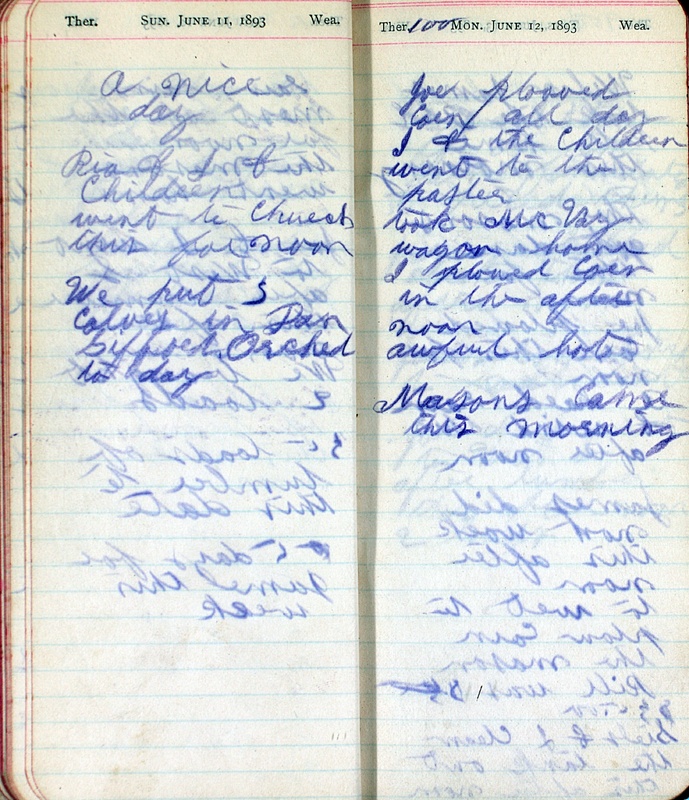 Ther. SUN. JUNE 11, 1893 Wea.
A nice
day
Ria & I &
Children
went to Church
this for noon
We put 3
Calves in Dan
Orched
to day
Ther. 100 MON. JUNE 12, 1893 Wea.
Joe plowed
Corn all day
I & the Children
went to the
took Mc
wagon home
I plowed Corn
in the after
noon
awful hot
Masons Came
this morning